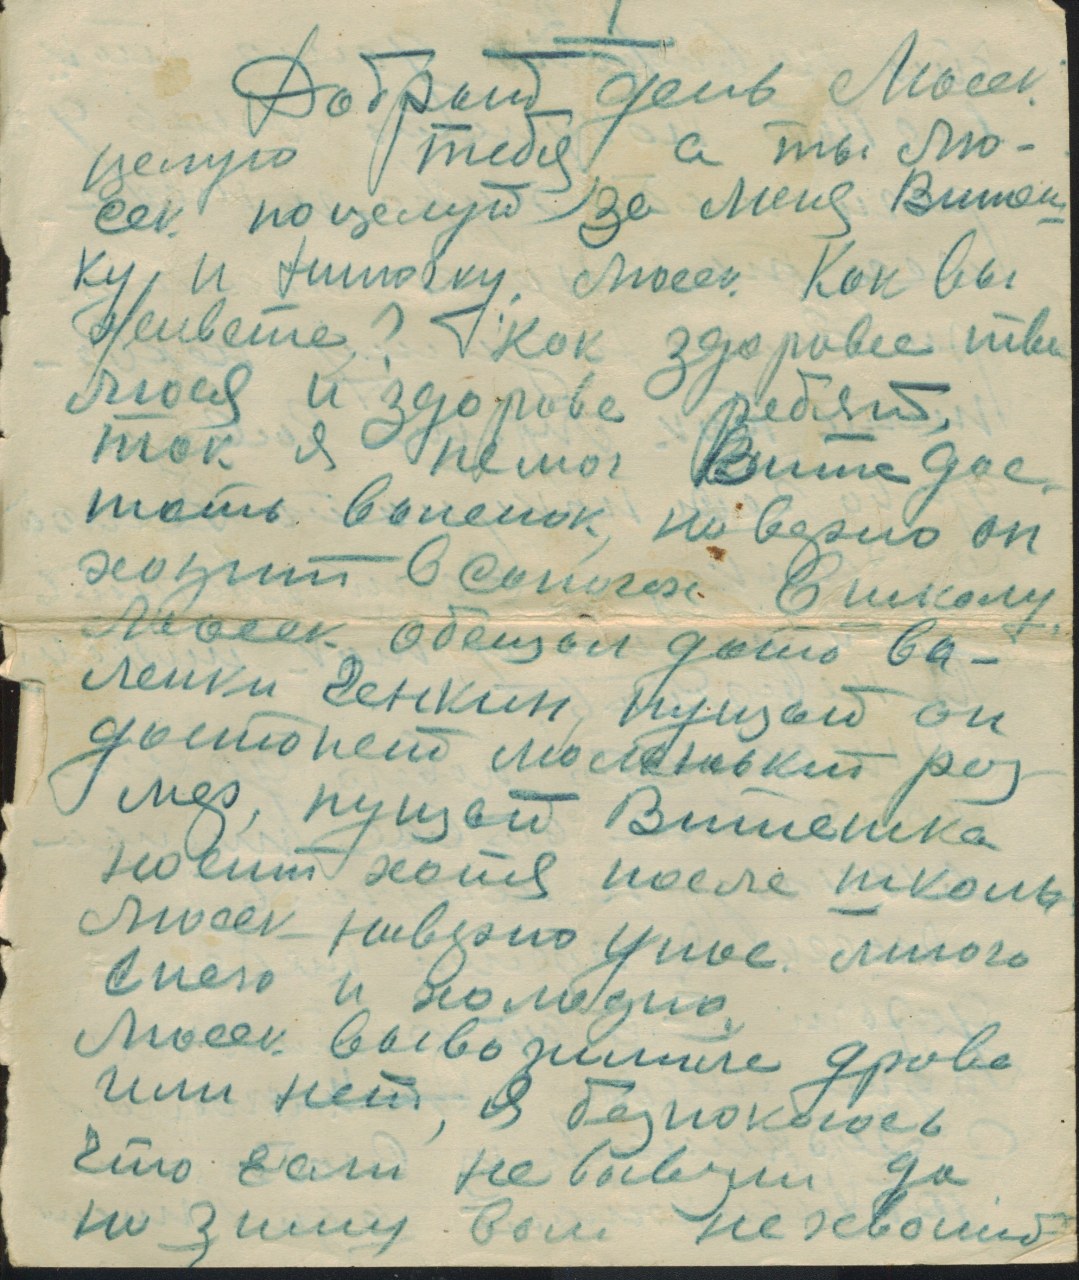 1
Добрый день Люсек.
целую тебя а ты Лю-
сек поцелуй за меня Витень
ку и Ниночку. Люсек Как вы
живете? Как здоровее тва
Люся и здорове ребят,
так я немог Вите дос-
тать валенок, наверно он
ходит в сапогах в школу.
Люсек обещал дать ва-
ленки Генкин, пущай он
достонет маленький раз
мер, пущай Витешка
носит хотя после школы
Люсек наверно унас много
снега и холодно.
Люсек вывозишле дрова
или нет, Я безпокоюсь
что если невывзли да
на зиму вам нехватит